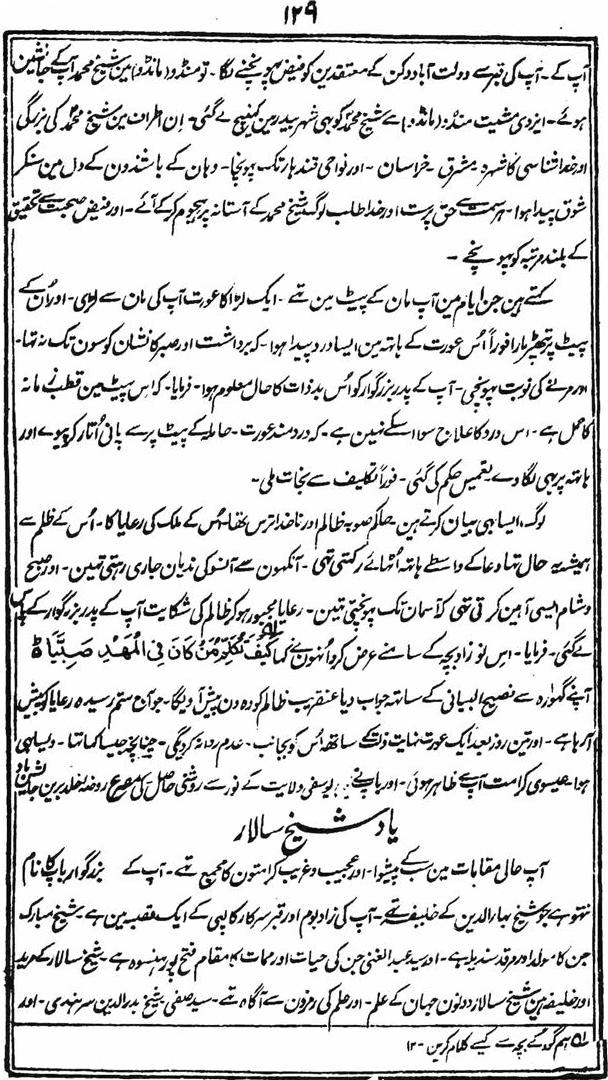 ۱۲۹
آپ کے - آپ کی قبر سے دولت آباد دکن کے معتقدین کو فیض پہونچنے لگا - تو منڈو (مانڈو) مین شیخ محمد آپ کے جانشین
ہوئے - ایزدی مشیت منڈو (مانڈو) سے شیخ محمد کو بھی شہر بیدر مین کھینچ لے گئی - ان اطراف مین شیخ محمد کی بزرگی
اور خدا شناسی کا شہرہ مشرق - خراسان - اور نواحی قندہار تک پہونچا - وہان کے باشندون کے دل مین سنکر
شوق پیدا ہوا - ہر سمت سے حق پرست اور خدا طلب لوگ شیخ محمد کے آستانہ پر ہجوم کر کے آئے - اور فیض صحبت سے تحقیق
کے بلند مرتبہ کو پہونچے -
کہتے ہین جن ایام مین آپ مان کے پیٹ مین تھے - ایک لڑاکا عورت آپ کی مان سے لڑی - اور اُن کے
پیٹ پر تھپڑ مارا فوراً اُس عورت کے ہاتھ مین ایسا درد پیدا ہوا - کہ برداشت اور صبر کا نشان کوسون تک نہ تھا -
اور مرنے کی نوبت پہونچی - آپ کے پدر بزرگوار کو اُس بد ذات کا حال معلوم ہوا - فرمایا - کہ اس پیٹ مین قطب زمانہ
کا حمل ہے - اس درد کا علاج سوا اسکے نہین ہے - کہ درد مند عورت - حاملہ کے پیٹ پر سے پانی اُتار کر پیوے اور
ہاتھ پر بھی لگا دے تعمیل حکم کی گئی - فوراً تکلیف سے نجات ملی -
لوگ، ایسا ہی بیان کرتے ہین - حاکم صوبہ ظالم اور ناخدا ترس تھا اُس کے ملک کی رعایا کا - اُس کے ظلم سے
ہمیشہ یہ حال تھا دعا کے واسطے ہاتھ اُٹھائے رکھتی تھی - آنکھون سے آنسو کی ندیان جاری رہتی تھین - اور صبح
و شام ایسی آہین کرتی تھی کہ آسمان تک پہونچتی تھین - رعایا مجبور ہو کر ظالم کی شکایت آپ کے پدر بزرگوار کے پاس
لے گئی - فرمایا - اس نوزاد بچہ کے سامنے عرض کرو اُنہون نے کہا كَيْفَ نُكَلِّمُ مَنْ كَانَ فِي الْمَهْدِ صَبِيًّا
آپنے گہوارہ سے فصیح البیانی کے ساتھ جواب دیا عنقریب ظالم کو وہ دن پیش آویگا - جو آج ستم رسیدہ رعایا کو پیش
آ رہا ہے - اور تین روز بعد ایک عورت نہایت ذلت کے ساتھ اُس کو بجانب - عدم روانہ کردیگی - چنانچہ جیسا کہا تھا - ویسا ہی
ہوا - عیسوی کرامت آپ سے ظاہر ہوئی - اور باپ نے یوسفی ولایت کے نور سے روشنی حاصل کی مصرع روضۂ خلد برین جایش باد
یاد شیخ سالار
آپ عالی مقامات مین سب کے پیشوا - اور عجیب و غریب کرامتون کا مجمع تھے - آپ کے بزرگوار باپ کا نام
نتھو ہے جو شیخ بہاء الدین کے خلیفہ تھے - آپ کی زاد بوم اور قبر سرکار کالپی کے ایک قصبہ مین ہے شیخ مبارک
جن کا مولد اور مرقد سندیلہ ہے - اور سید عبد الغنی جن کی حیات اور ممات کا مقام فتح پور ہنسوہ ہے شیخ سالار کے مرید
اور خلیفہ ہین شیخ سالار دونون جہان کے علم - اور علم کی رمزون سے آگاہ تھے - سید صفی شیخ بدر الدین سرہندی - اور
۱ہ ہم گود کے بچہ سے کیسے کلام کرین - ۱۲